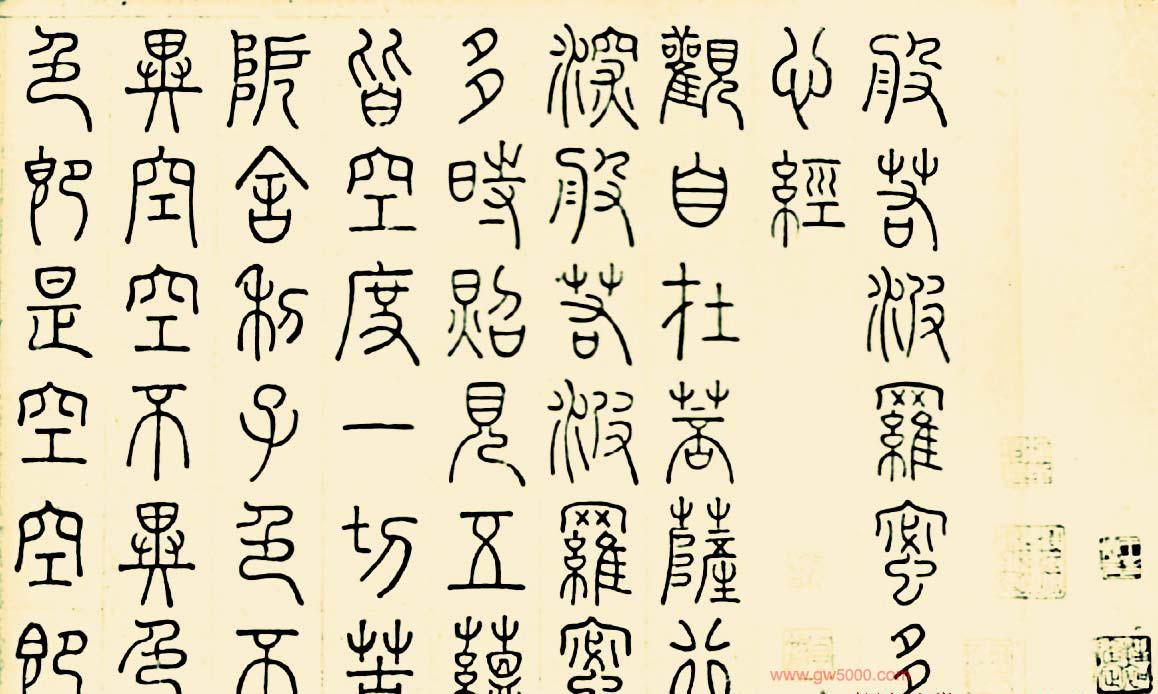 般若波羅蜜多
心經
觀自在菩薩行
深般若波羅蜜
多時照見五蘊
皆空度一切苦
阨舍利子色不
異空空不異色
色即是空空即
www.gw5000.com